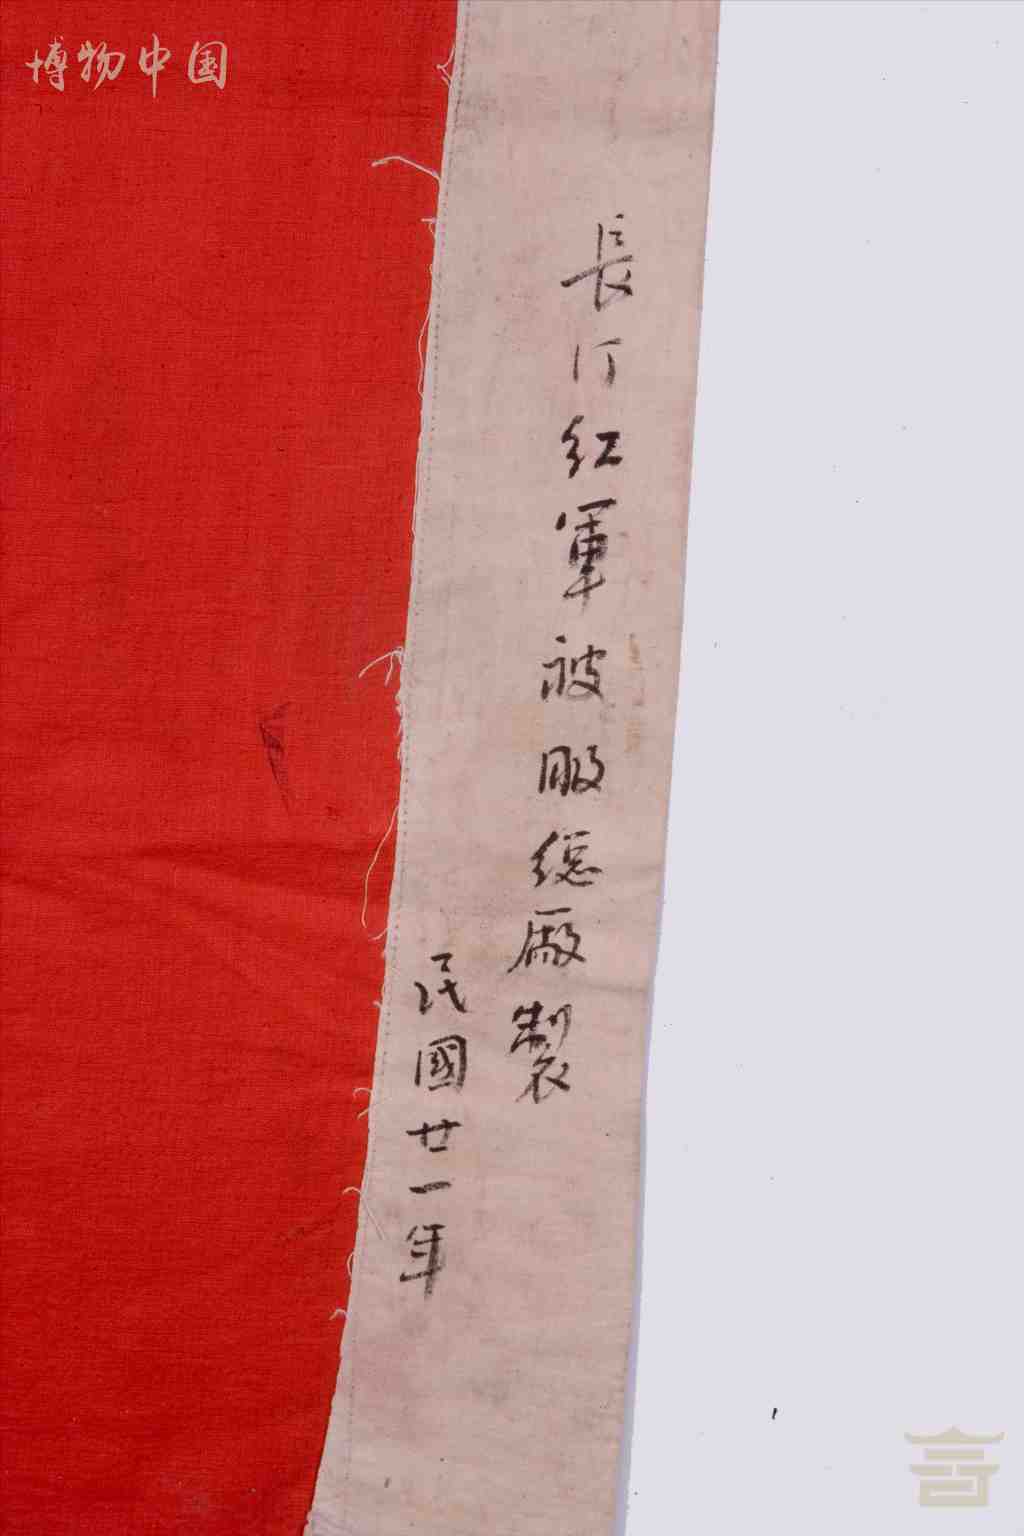 博物中国
長汀紅軍被服總廠製
民國廿一年